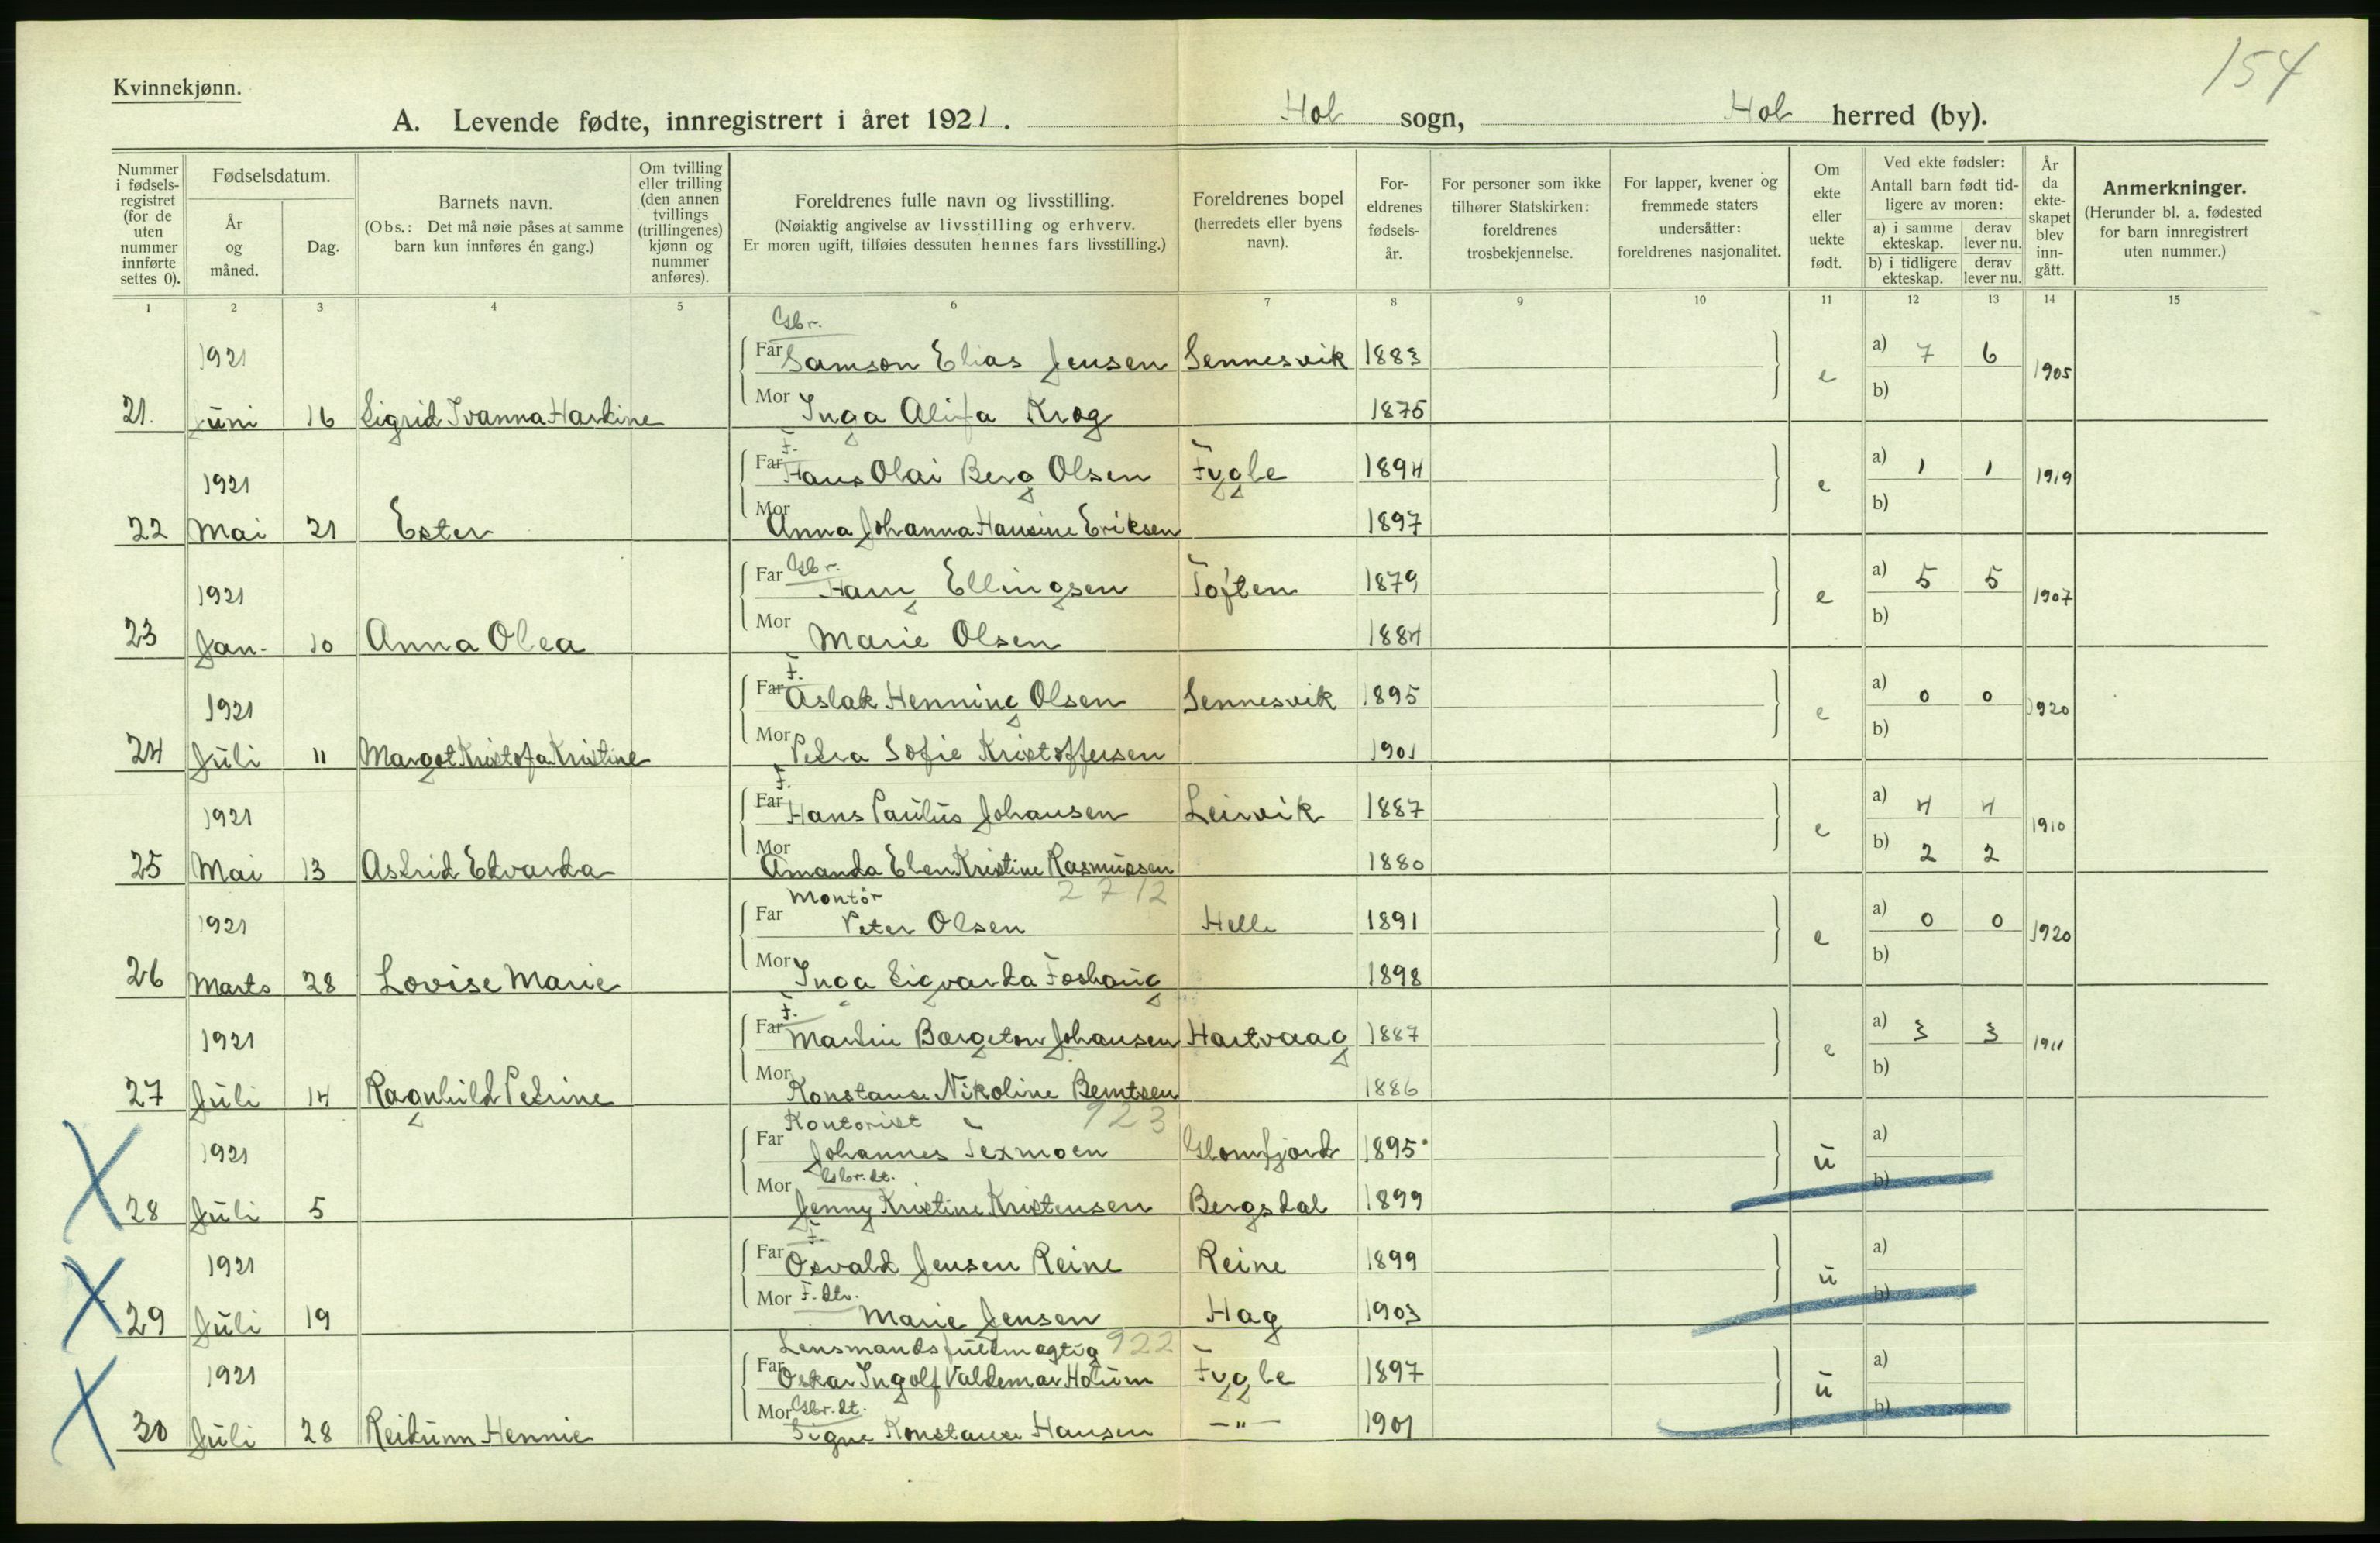 154
Kvinnekjønn.
A. Levende fødte, innregistrert i året 1921. Hol sogn, Hol herred (by).
Nummer i fødsels-registret (for de uten nummer innførte settes 0).
Fødselsdatum.
År og måned.
Dag.
Barnets navn.
(Obs.: Det må nøie påses at samme barn kun innføres én gang.)
Om tvilling eller trilling (den annen tvillings (trillingenes) kjønn og nummer anføres).
Foreldrenes fulle navn og livsstilling.
(Nøiaktig angivelse av livsstilling og erhverv. Er moren ugift, tilføies dessuten hennes fars livsstilling.)
Foreldrenes bopel (herredets eller byens navn).
For-eldrenes fødsels-år.
For personer som ikke tilhører Statskirken: foreldrenes trosbekjennelse.
For lapper, kvener og fremmede staters undersåtter: foreldrenes nasjonalitet.
Om ekte eller uekte født.
Ved ekte fødsler: Antall barn født tid-ligere av moren:
a) i samme ekteskap. derav lever nu.
b) i tidligere ekteskap. derav lever nu.
År da ekte-skapet blev inn-gått.
Anmerkninger.
(Herunder bl. a. fødested for barn innregistrert uten nummer.)
1 2 3 4 5 6 7 8 9 10 11 12 13 14 15
Gbr.
1921 Far Samson Elias Jensen Sennesvik 1883 e a) 7 6 1905
21. Juni 16 Sigrid Ivanna Hardine Mor Inga Alida Krog 1875 b)
F.
1921 Far Hans Olai Berg Olsen Fygle 1894 e a) 1 1 1919
22 Mai 21 Ester Mor Anna Johanna Hansine Eriksen 1897 b)
Gbr.
1921 Far Hans Ellingsen Toften 1879 e a) 5 5 1907
23 Jan. 10 Anna Olea Mor Marie Olsen 1884 b)
F.
1921 Far Aslak Henning Olsen Sennesvik 1895 e a) 0 0 1920
24 Juli 11 Margot Kristofa Kristine Mor Petra Sofie Kristoffersen 1901 b)
F.
1921 Far Hans Paulus Johansen Leirvik 1887 e a) 4 4 1910
25 Mai 13 Astrid Edvarda Mor Amanda Elen Kristine Rasmussen 1880 b) 2 2
Montør 2712
1921 Far Peter Olsen Helle 1891 e a) 0 0 1920
26 Marts 28 Lovise Marie Mor Inga Sigvarda Foshaug 1898 b)
F.
1921 Far Martin Borgeton Johansen Hartvaag 1887 e a) 3 3 1911
27 Juli 14 Ragnhild Petrine Mor Konstanse Nikoline Berntsen 1886 b)
Kontorist 923
1921 Far Johannes Texmoen Glomfjord 1895 u a)
Gbr.dt.
28 Juli 5 Mor Jenny Kristine Kristensen Bergsdal 1899 b)
F.
1921 Far Osvald Jensen Reine Reine 1899 u a)
29 Juli 19 Mor F. dtr. Marie Jensen Hag 1903 b)
Lensmandsfuldmægtig 922
1921 Far Oskar Ingolf Valdemar Holum Fygle 1897 u a)
Gbr.dt.
30 Juli 28 Reidunn Hennie Mor Signe Konstanse Hansen —"— 1901 b)